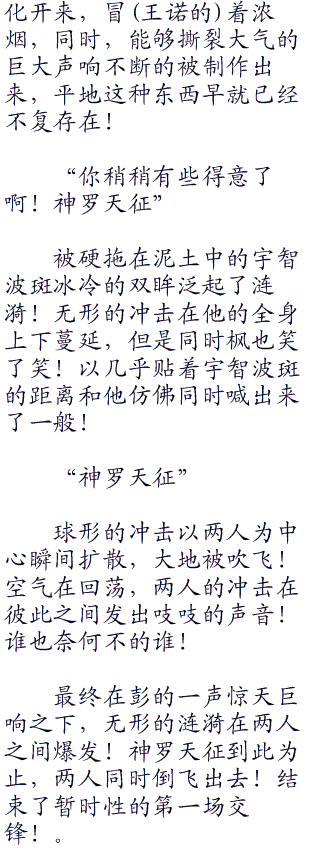 化开来，冒(王诺的)着浓
烟，同时，能够撕裂大气的
巨大声响不断的被制作出
来，平地这种东西早就已经
不复存在！
“你稍稍有些得意了
啊！神罗天征”
被硬拖在泥土中的宇智
波斑冰冷的双眸泛起了涟
漪！无形的冲击在他的全身
上下蔓延，但是同时枫也笑
了笑！以几乎贴着宇智波斑
的距离和他仿佛同时喊出来
了一般！
“神罗天征”
球形的冲击以两人为中
心瞬间扩散，大地被吹飞！
空气在回荡，两人的冲击在
彼此之间发出吱吱的声音！
谁也奈何不的谁！
最终在彭的一声惊天巨
响之下，无形的涟漪在两人
之间爆发！神罗天征到此为
止，两人同时倒飞出去！结
束了暂时性的第一场交
锋！。